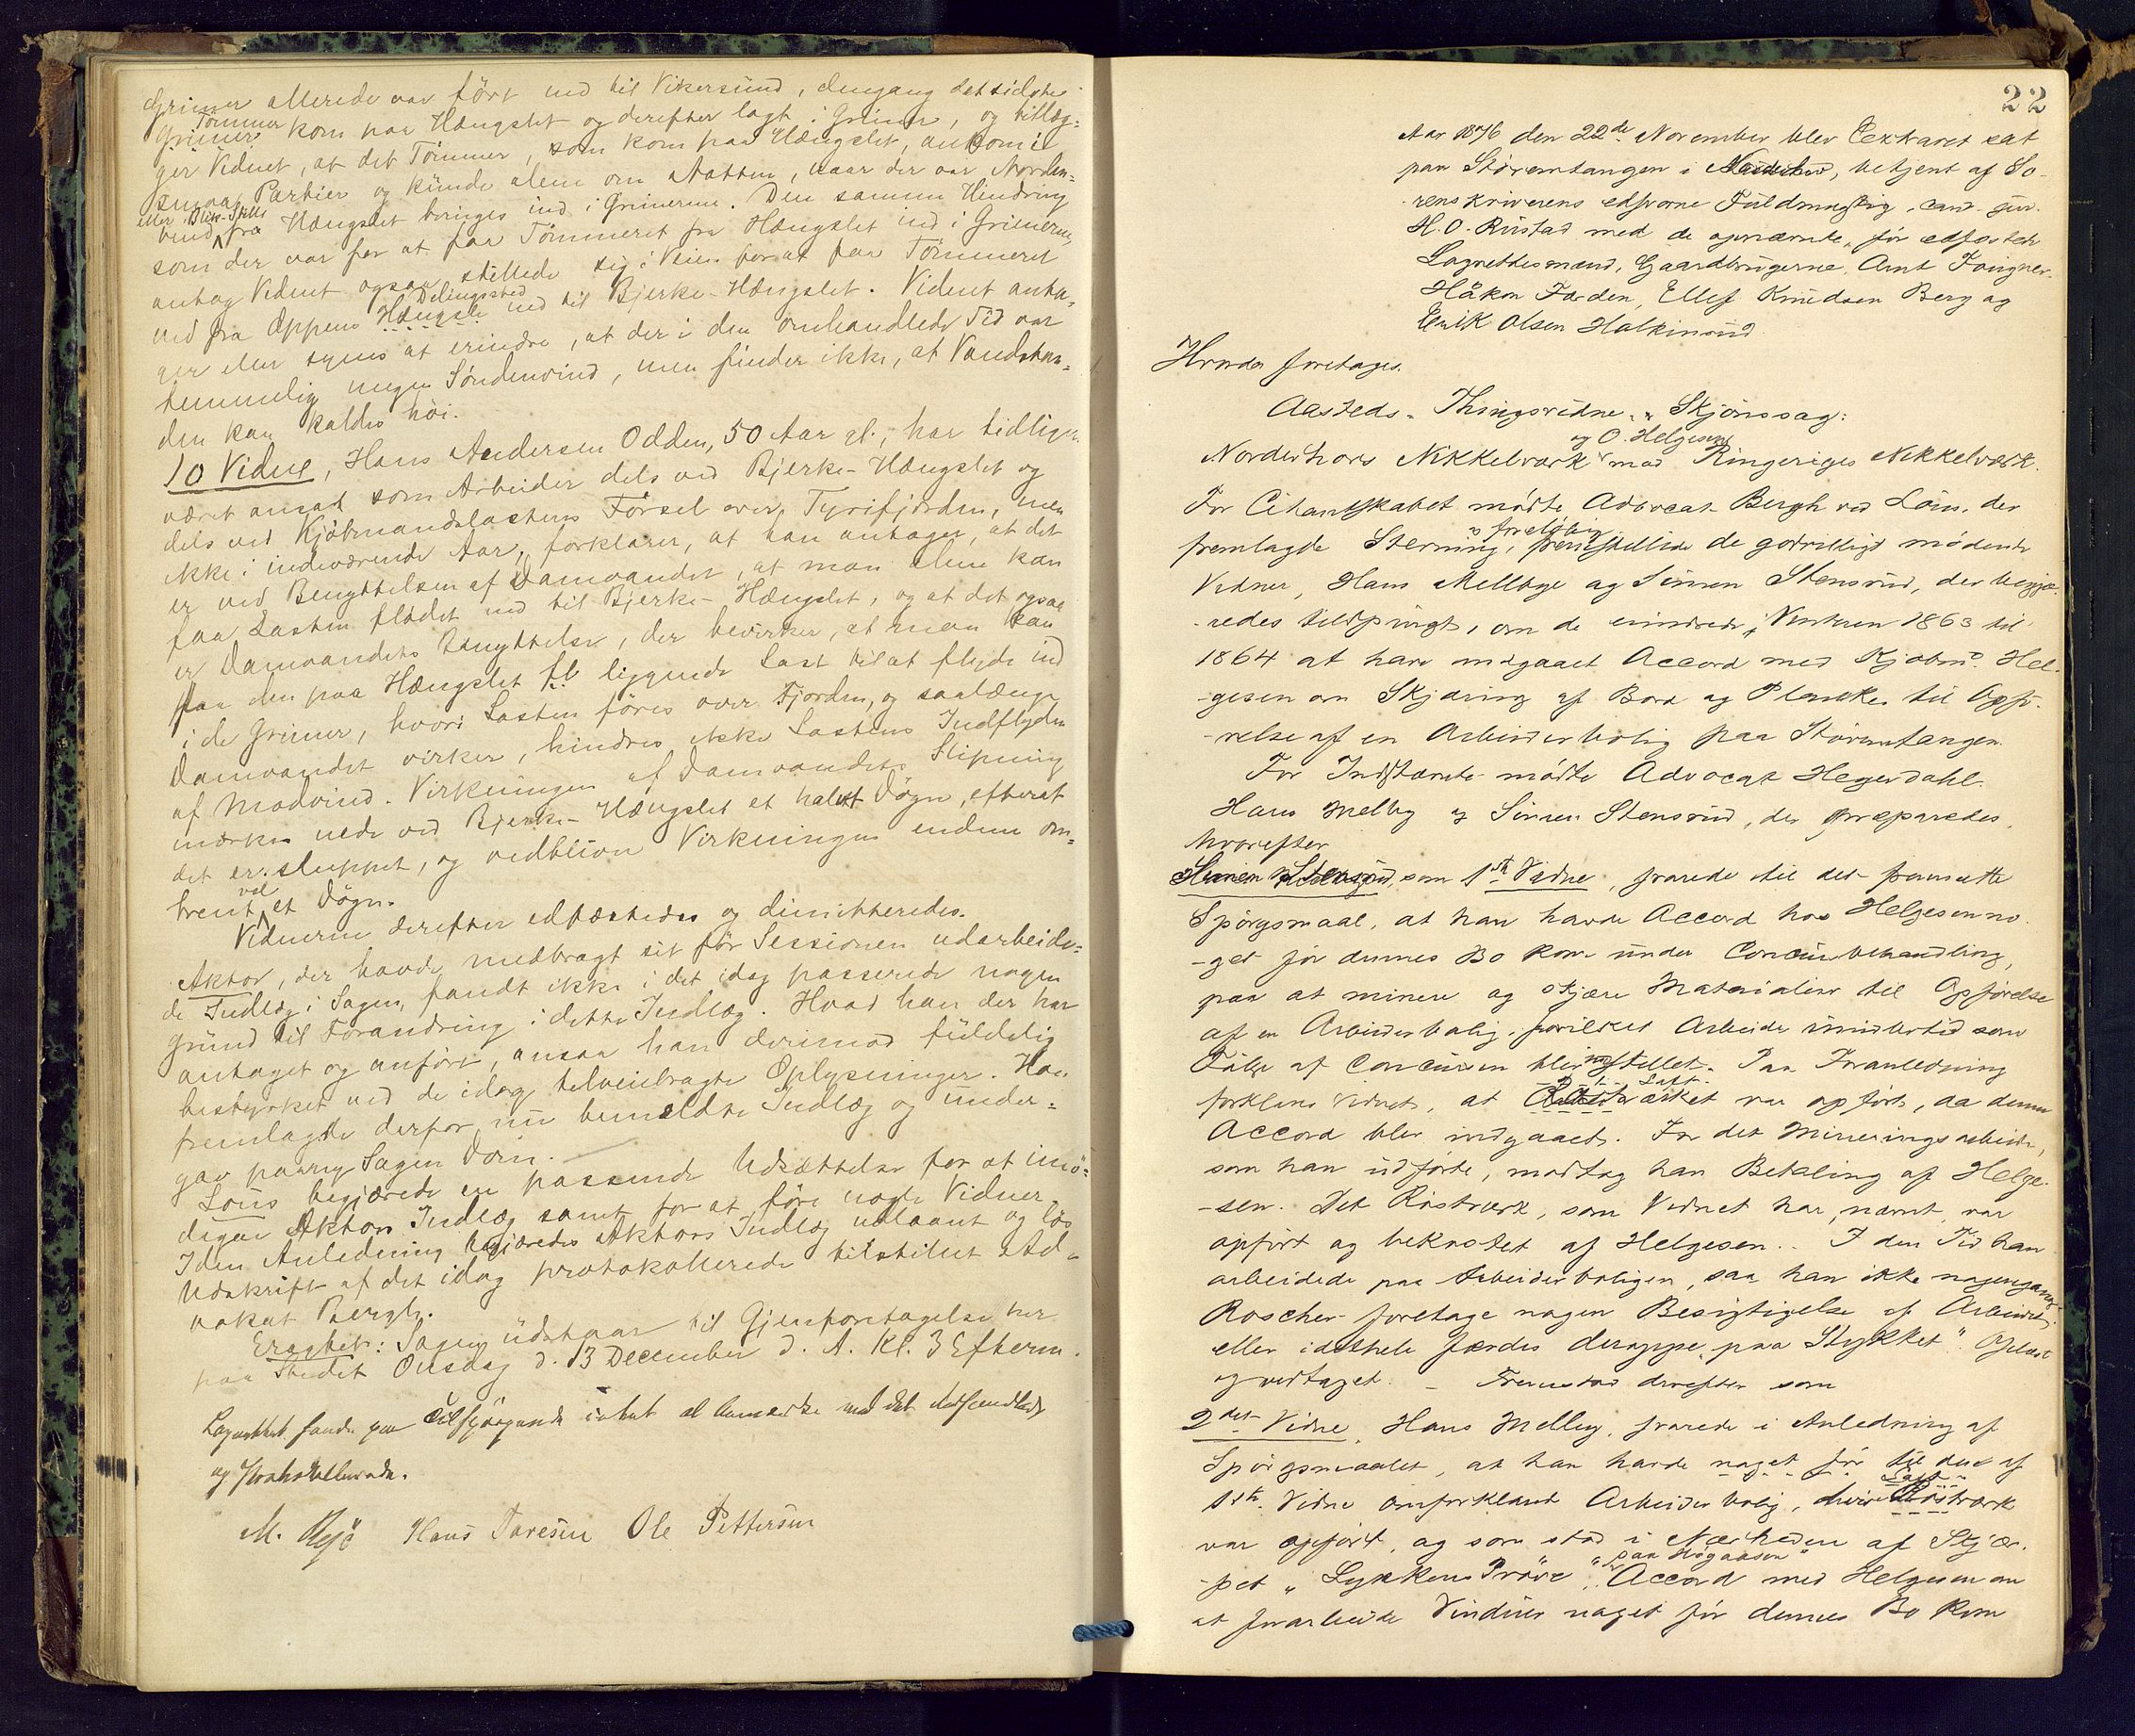 Grimer allerede var ført ned til Vikersund, dengang det sidste
Tømmer
Grimer kom paa Hængslet og derefter lagt i Grime, og tillæg-
ger Vidnet, at det Tømmer, som kom paa Hængslet, ankom i
smaa Partier og kunde alene om Natten, naar der var Norden-
eller Blik-Stille
vind fra Hængslet bringes ind i Grimerne. Den samme Hindring
som der var for at faa Tømmeret fra Hængslet ind i Grimerne,
antog Vidnet ogsaa stillede sig i Veien for at faa Tømmeret
Delingssted
ned fra Oppens Hængsle ned til Bjerke-Hængslet. Vidnet anta-
ger eller synes at erindre, at der i den omhandlede Tid var
temmelig megen Søndenvind, men finder ikke, at Vandstan-
den kan kaldes høi.
10 Vidne, Hans Andersen Odden, 50 Aar gl., har tidligere
været ansat som Arbeider dels ved Bjerke-Hængslet og
dels ved Kjøbmandslastens Førsel over Tyrifjorden, men
ikke i indeværende Aar, forklarer, at han antager, at det
er ved Benyttelsen af Damvandet, at man alene kan
faa Lasten flødet ned til Bjerke-Hængslet, og at det ogsaa
er Damvandets Benyttelse, der bevirker, at man kan
faa den paa Hængslet liggende Last til at flyde ind
i de Grimer, hvori Lasten føres over Fjorden, og saalænge
Damvandet virker, hindres ikke Lastens Indflyden
af Modvind. Virkningen af Damvandets Slipning
mærkes nede ved Bjerke-Hængslet et halvt Døgn, efterat
det er sluppet, og vedbliver Virkningen endnu om-
vel
trent et Døgn.
Vidnerne derefter edfæstedes og dimitteredes.
Aktor, der havde medbragt sit før Sessionen udarbeide-
de Indlæg i Sagen, fandt ikke i det idag passerede nogen
Grund til Forandring i dette Indlæg. Hvad han der har
antaget og anført, ansaa han derimod fuldelig
bestyrket ved de idag tilveiebragte Oplysninger. Han
fremlagde derfor nu bemeldte Indlæg og under-
gav paany Sagen Dom.
Louis begjærede en passende Udsættelse for at imø-
degaa Aktors Indlæg samt for at føre nogle Vidner.
I den Anledning begjæredes Aktors Indlæg udlaant og løs
Udskrift af det idag protokollerede tilstillet Ad-
vokat Bergh.
Eragtet: Sagen udstaar til Gjenforetagelse her
paa Stedet Onsdag d. 13 December d. A. Kl. 3 Efterm.
Lagrettet fandt paa Tilspørgende intet at bemærke ved det
og Protokollerede.
Hans Taresen Ole Pettersen
22
Aar 1876 den 22de November blev Extraret sat
paa Støverntangen i Norderhov, betjent af So-
renskriverens edsvorne Fuldmægtig, cand. jur.
H. O. Rustad med de opnævnte, før edfæstede
Lagrettesmænd, Gaardbrugerne Arnt
Håkon Færden, Ellef Knudsen Berg og
Erik Olsen Halkinrud
Hvorda foretoges.
Aasteds- Thingsvidne- & Skjønssag:
og O. Helgesen
Norderhovs Nikkelværk mod Ringeriges Nikkelværk.
For Citantskabet mødte Advocat Bergh ved Louis, der
foreløbig
fremlagde Stevning, & fremstillede de godvilligt mødende
Vidner, Hans Mellbye og Simen Stensrud, der begjæ-
redes tilspurgt, om de erindrede, Vinteren 1863 til
1864 at have indgaaet Accord med Kjøbmd. Hel-
gesen om Skjæring af Bord og Planker til Opfø-
relse af en Arbeiderbolig paa Støverntangen.
For Indstævnte mødte Advocat Hegerdahl.
Hans Melby og Simen Stensrud, der præparedes,
hvorefter
Simen Stensrud, som 1ste Vidne, svarede til det fremsatte
Spørgsmaal, at han havde Accord hos Helgesen no-
get før dennes Bo kom under Concursbehandling,
paa at minere og skjære Materialier til Opførelse
af en Arbeiderbolig, hvilket Arbeide imidlertid som
Følge af Concursen blev indstillet. Paa Foranledning
forklarer Vidnet, at Rostværket var opført, da denne
Accord blev indgaaet. For det Mineringsarbeide,
som han udførte, modtog han Betaling af Helge-
sen. Det Rostværk, som Vidnet har nævnt, var
opført og bekostet af Helgesen. I den Tid han
arbeidede paa Arbeiderboligen, saa han ikke nogengang
Roscher foretage nogen Besigtigelse af Arbeidet,
eller idethele færdes deroppe "paa Stykket". Oplæst
og vedtaget. — Fremstod derefter som
2det Vidne, Hans Melby, svarede i Anledning af
Spørgsmaalet, at han havde noget før til den af
1ste Vidne omforklarede Arbeiderbolig, hvis Rostværk
var opført, og som stod i Nærheden af Skjær-
paa Høgaasen
pet "Lykkens Prøve", Accord med Helgesen om
at forarbeide Vinduer noget før dennes Bo kom